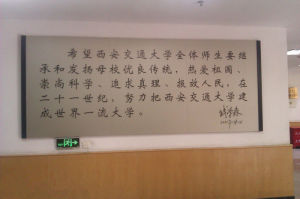 希望西安交通大学全体师生要继
承和发扬母校优良传统，热爱祖国、
崇尚科学、追求真理、报效人民，在
二十一世纪，努力把西安交通大学建
成世界一流大学。
钱学森